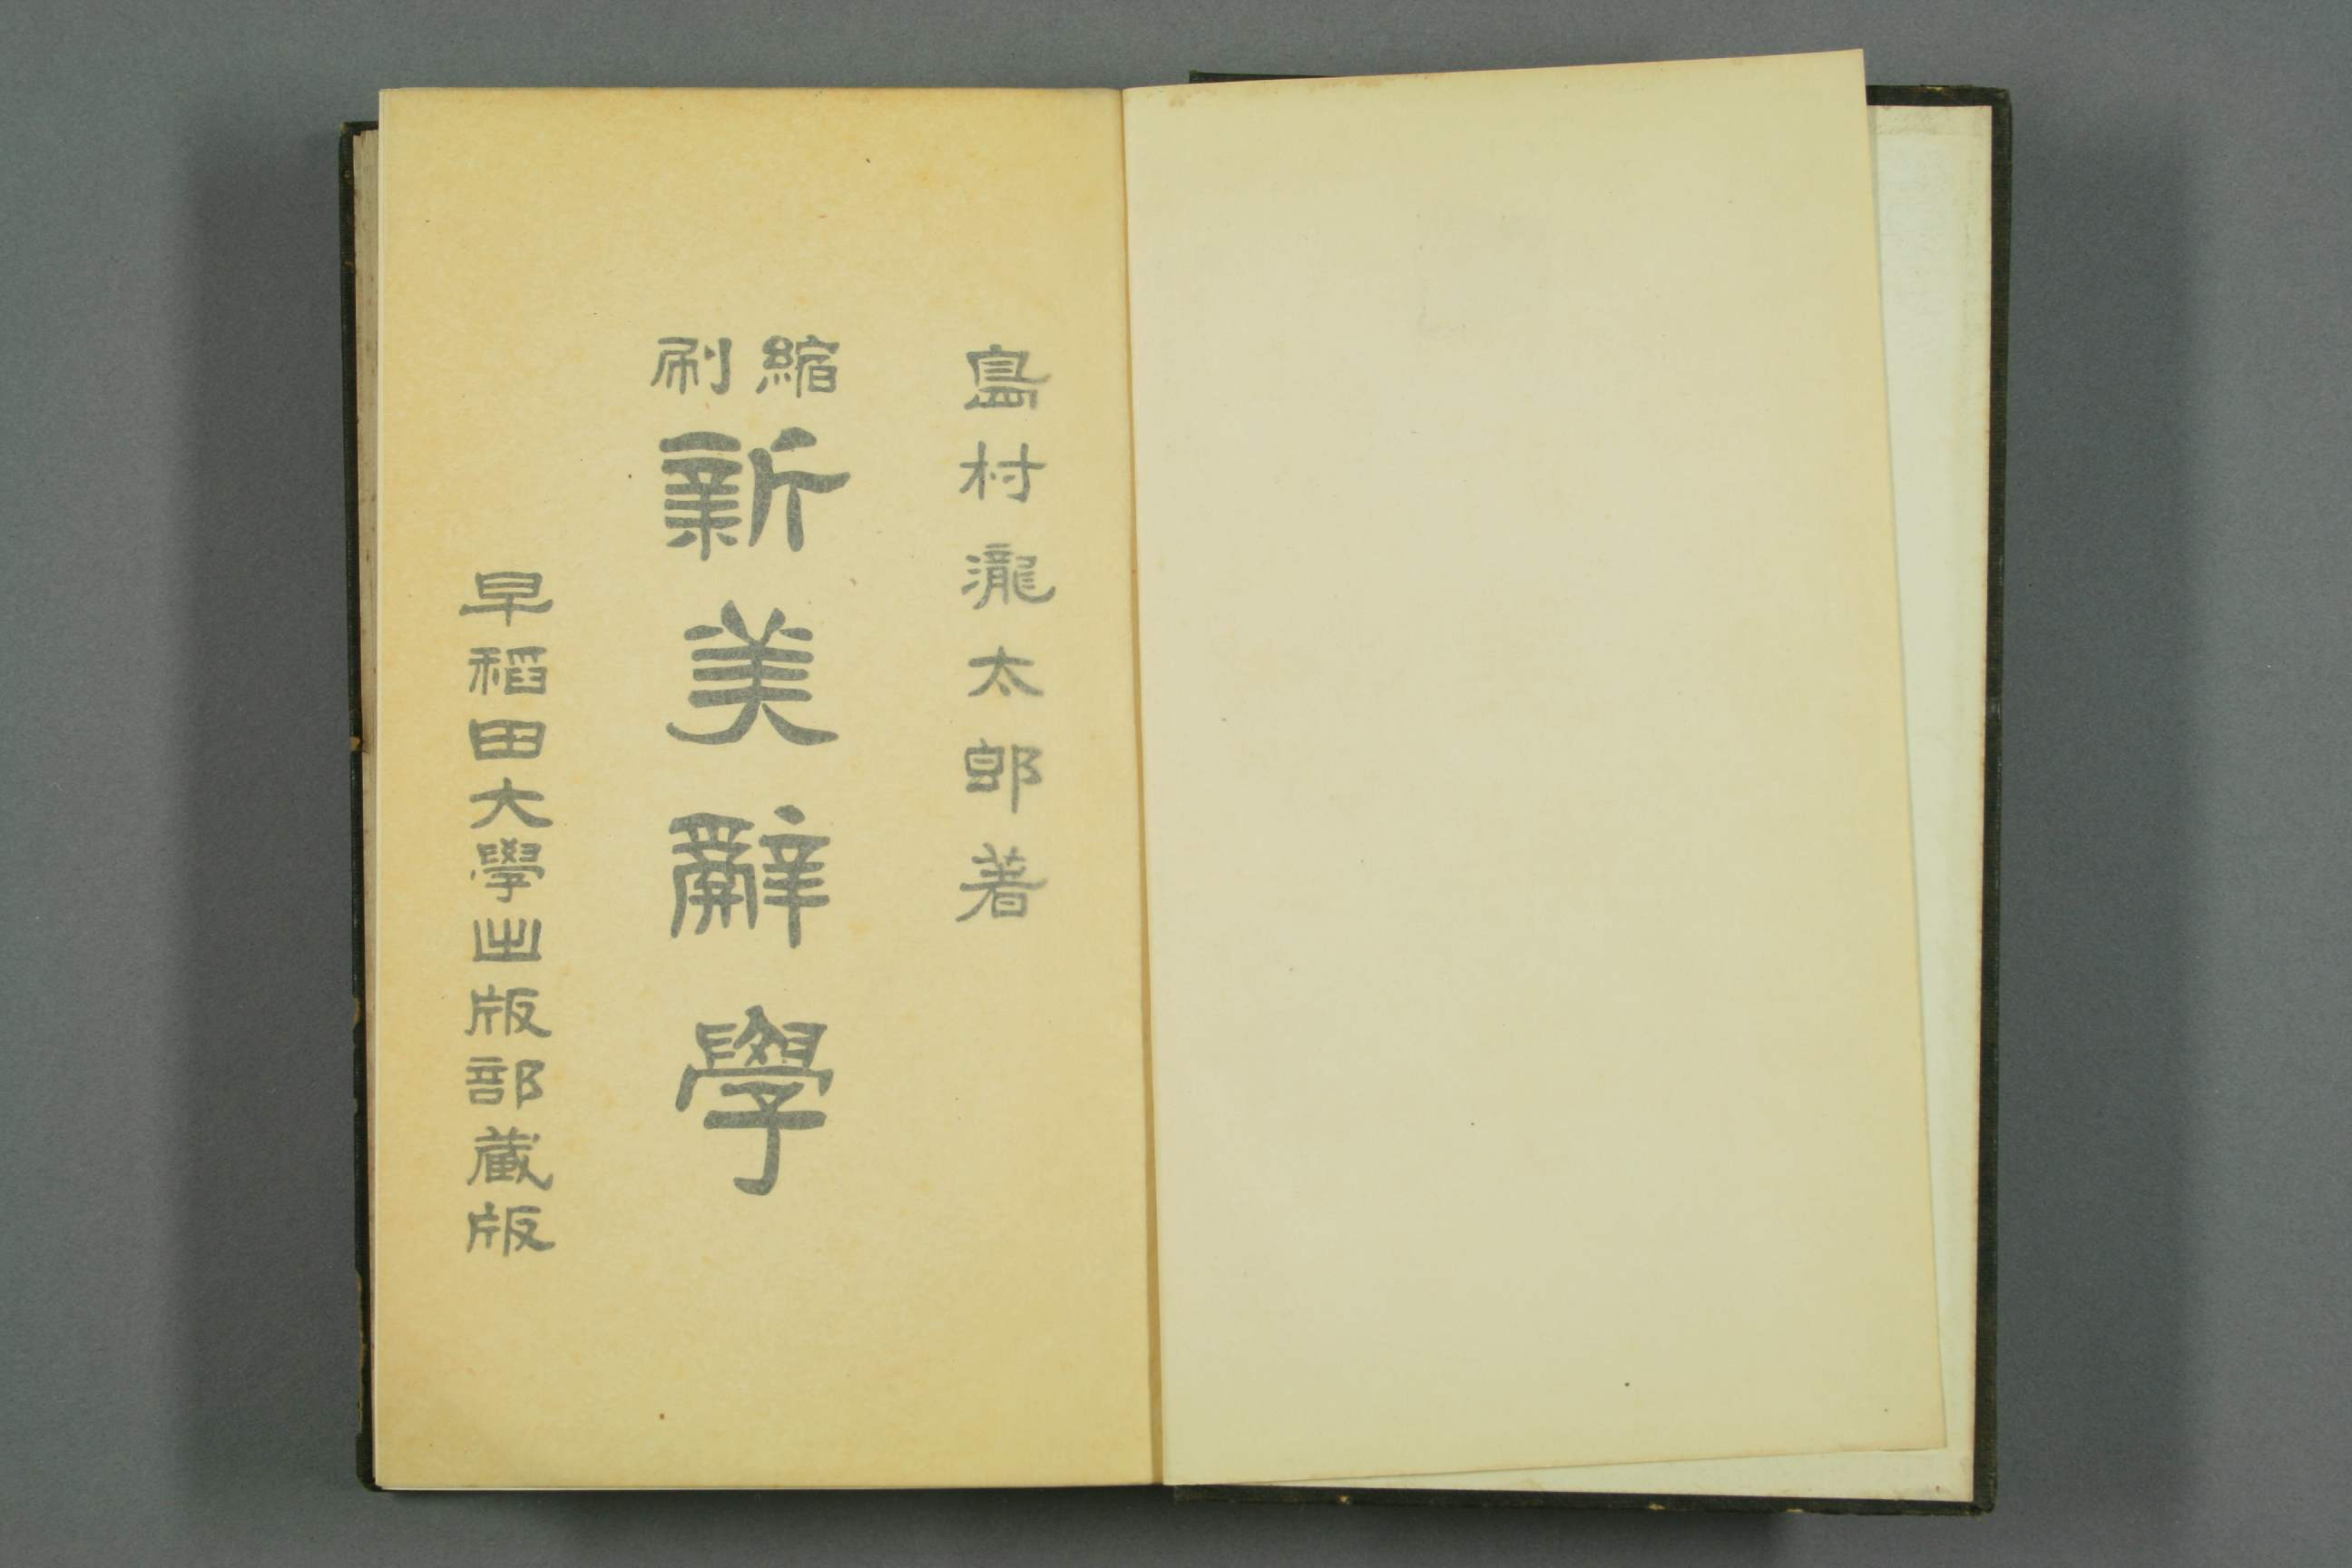 島村瀧太郎著
縮刷
新美辭學
早稻田大學出版部蔵版